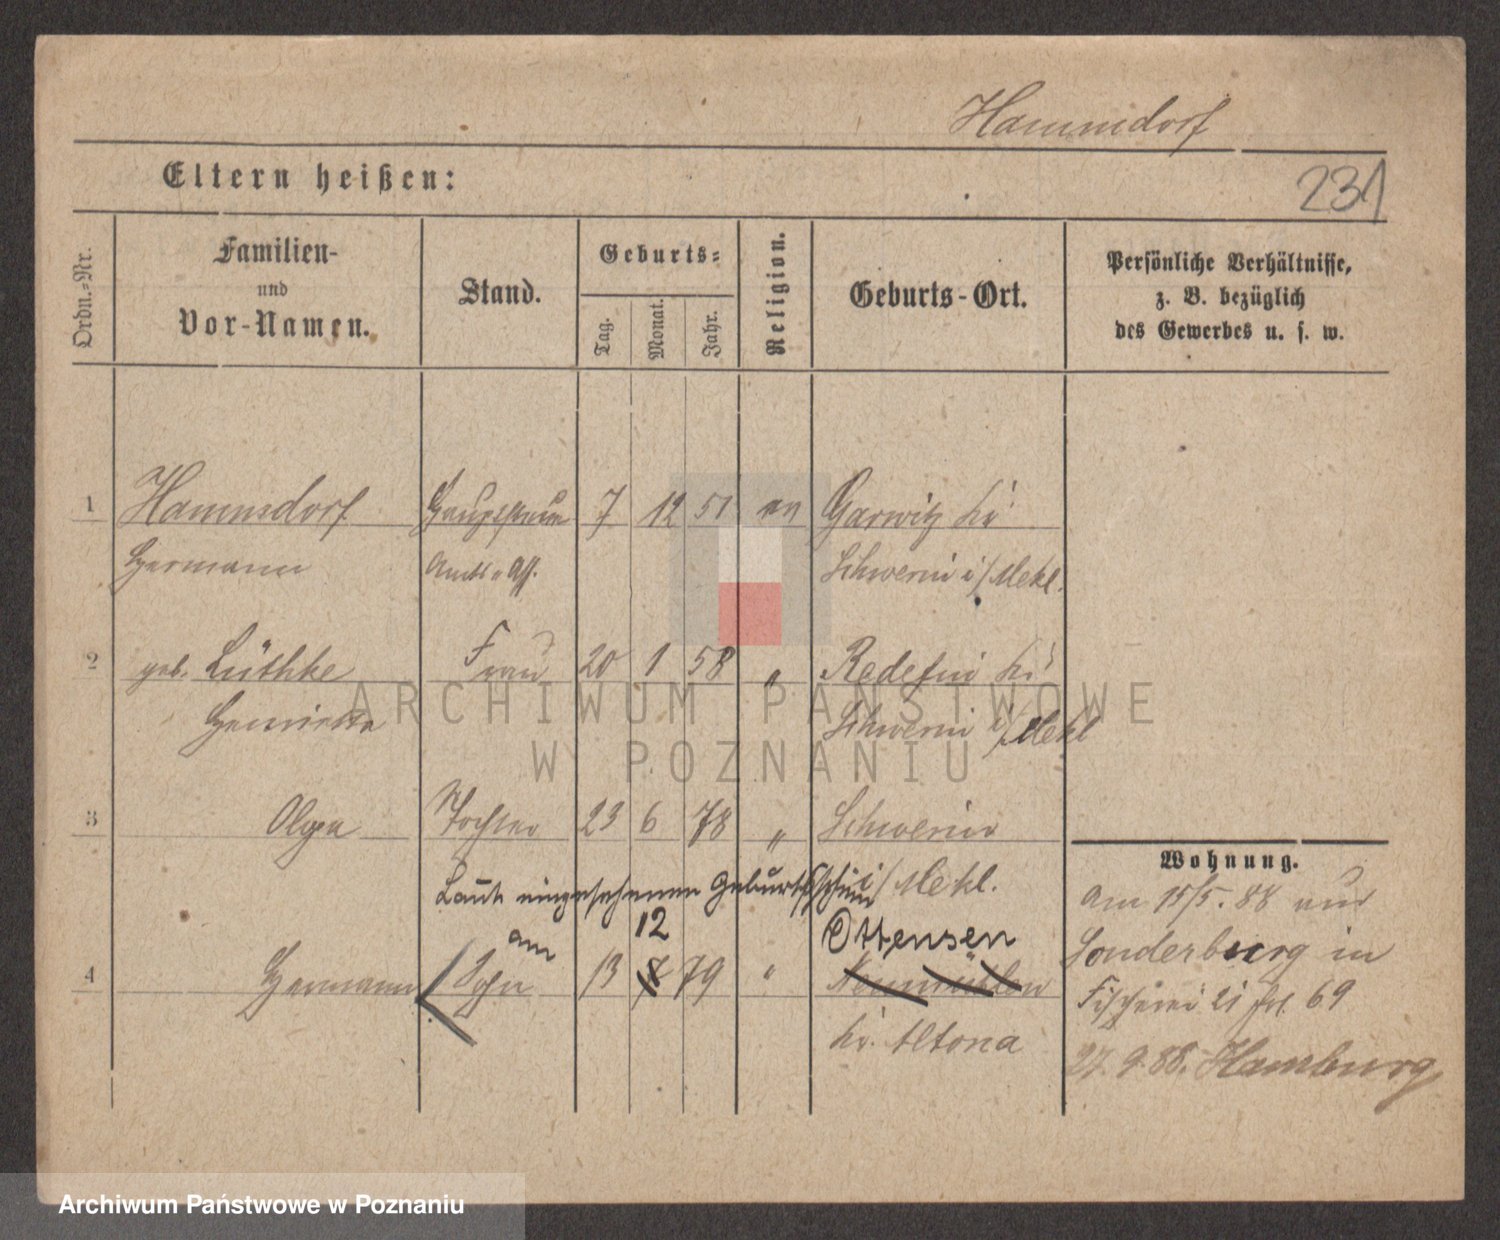 Hammsdorf
Eltern heißen:
231
Ordn.-Nr.
Familien-
und
Vor-Namen.
Stand.
Geburts-
Tag.
Monat.
Jahr.
Religion.
Geburts-Ort.
Persönliche Verhältnisse,
z. B. bezüglich
des Gewerbes u. s. w.
1 Hammsdorf 7 12 51 Garwitz Kr
Hermann Schwerin i/Mekl.
2 geb. Lüthke Frau 20 1 58 " Redefin Kr
Henriette Schwerin i/Mekl
3 Olga Tochter 23 6 78 " Schwerin
i/Mekl.
Laut eingesehenen Geburtsschein
am 12 Ottensen
4 Hermann Sohn 13 79 " Neumühlen
Kr. Altona
Wohnung.
am 15/5. 88 aus
Sonderburg in
Fischerei 21 69
27. 9. 88. Hamburg
ARCHIWUM PAŃSTWOWE
W POZNANIU
Archiwum Państwowe w Poznaniu